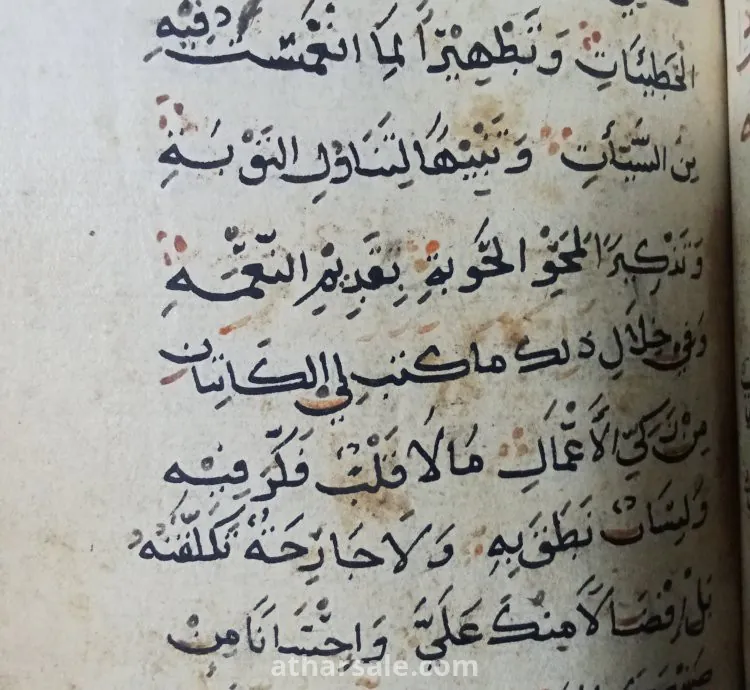 الخَطِيئَاتِ وَتَطْهِيْرًا لِمَا انْغَمَسْتُ فِيْهِ
مِنَ السَّيِّئَاتِ وَتَنْبِيْهًا لِتَنَاوُلِ التَّوْبَةِ
وَتَذْكِيرًا لِمَحْوِ الحَوْبَةِ بِقَدِيْمِ النِّعْمَةِ
وَفِي خِلَالِ ذَلِكَ مَا كَتَبَ لِي الكَاتِبَانِ
مِنْ زَكِيِّ الأَعْمَالِ مَا لَا قَلْبٌ فَكَّرَ فِيْهِ
وَلِسَانٌ نَطَقَ بِهِ وَلَا جَارِحَةٌ تَكَلَّفَتْهُ
بَلْ إِفْضَالًا مِنْكَ عَلَيَّ وَإِحْسَانًا مِنْ
atharsale.com